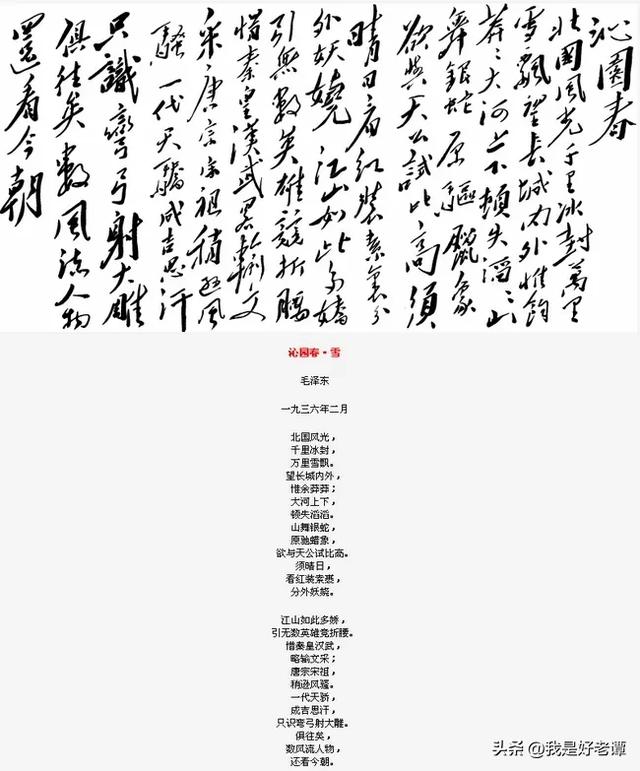 沁園春
北國風光千里冰封萬里
雪飄望長城内外惟餘
莽〻大河上下頓失滔〻山
舞銀蛇原驅臘象
欲與天公試比高須
晴日看紅裝素裹分
外妖嬈江山如此多嬌
引無數英雄競折腰
惜秦皇漢武略輸文
采唐宗宋祖稍遜風
騷一代天驕成吉思汗
只識彎弓射大雕
俱往矣數風流人物
還看今朝
沁园春·雪
毛泽东
一九三六年二月
北国风光，
千里冰封，
万里雪飘。
望长城内外，
惟余莽莽；
大河上下，
顿失滔滔。
山舞银蛇，
原驰蜡象，
欲与天公试比高。
须晴日，
看红装素裹，
分外妖娆。
江山如此多娇，
引无数英雄竞折腰。
惜秦皇汉武，
略输文采；
唐宗宋祖，
稍逊风骚。
一代天骄，
成吉思汗，
只识弯弓射大雕。
俱往矣，
数风流人物，
还看今朝。
头条 @我是好老谭